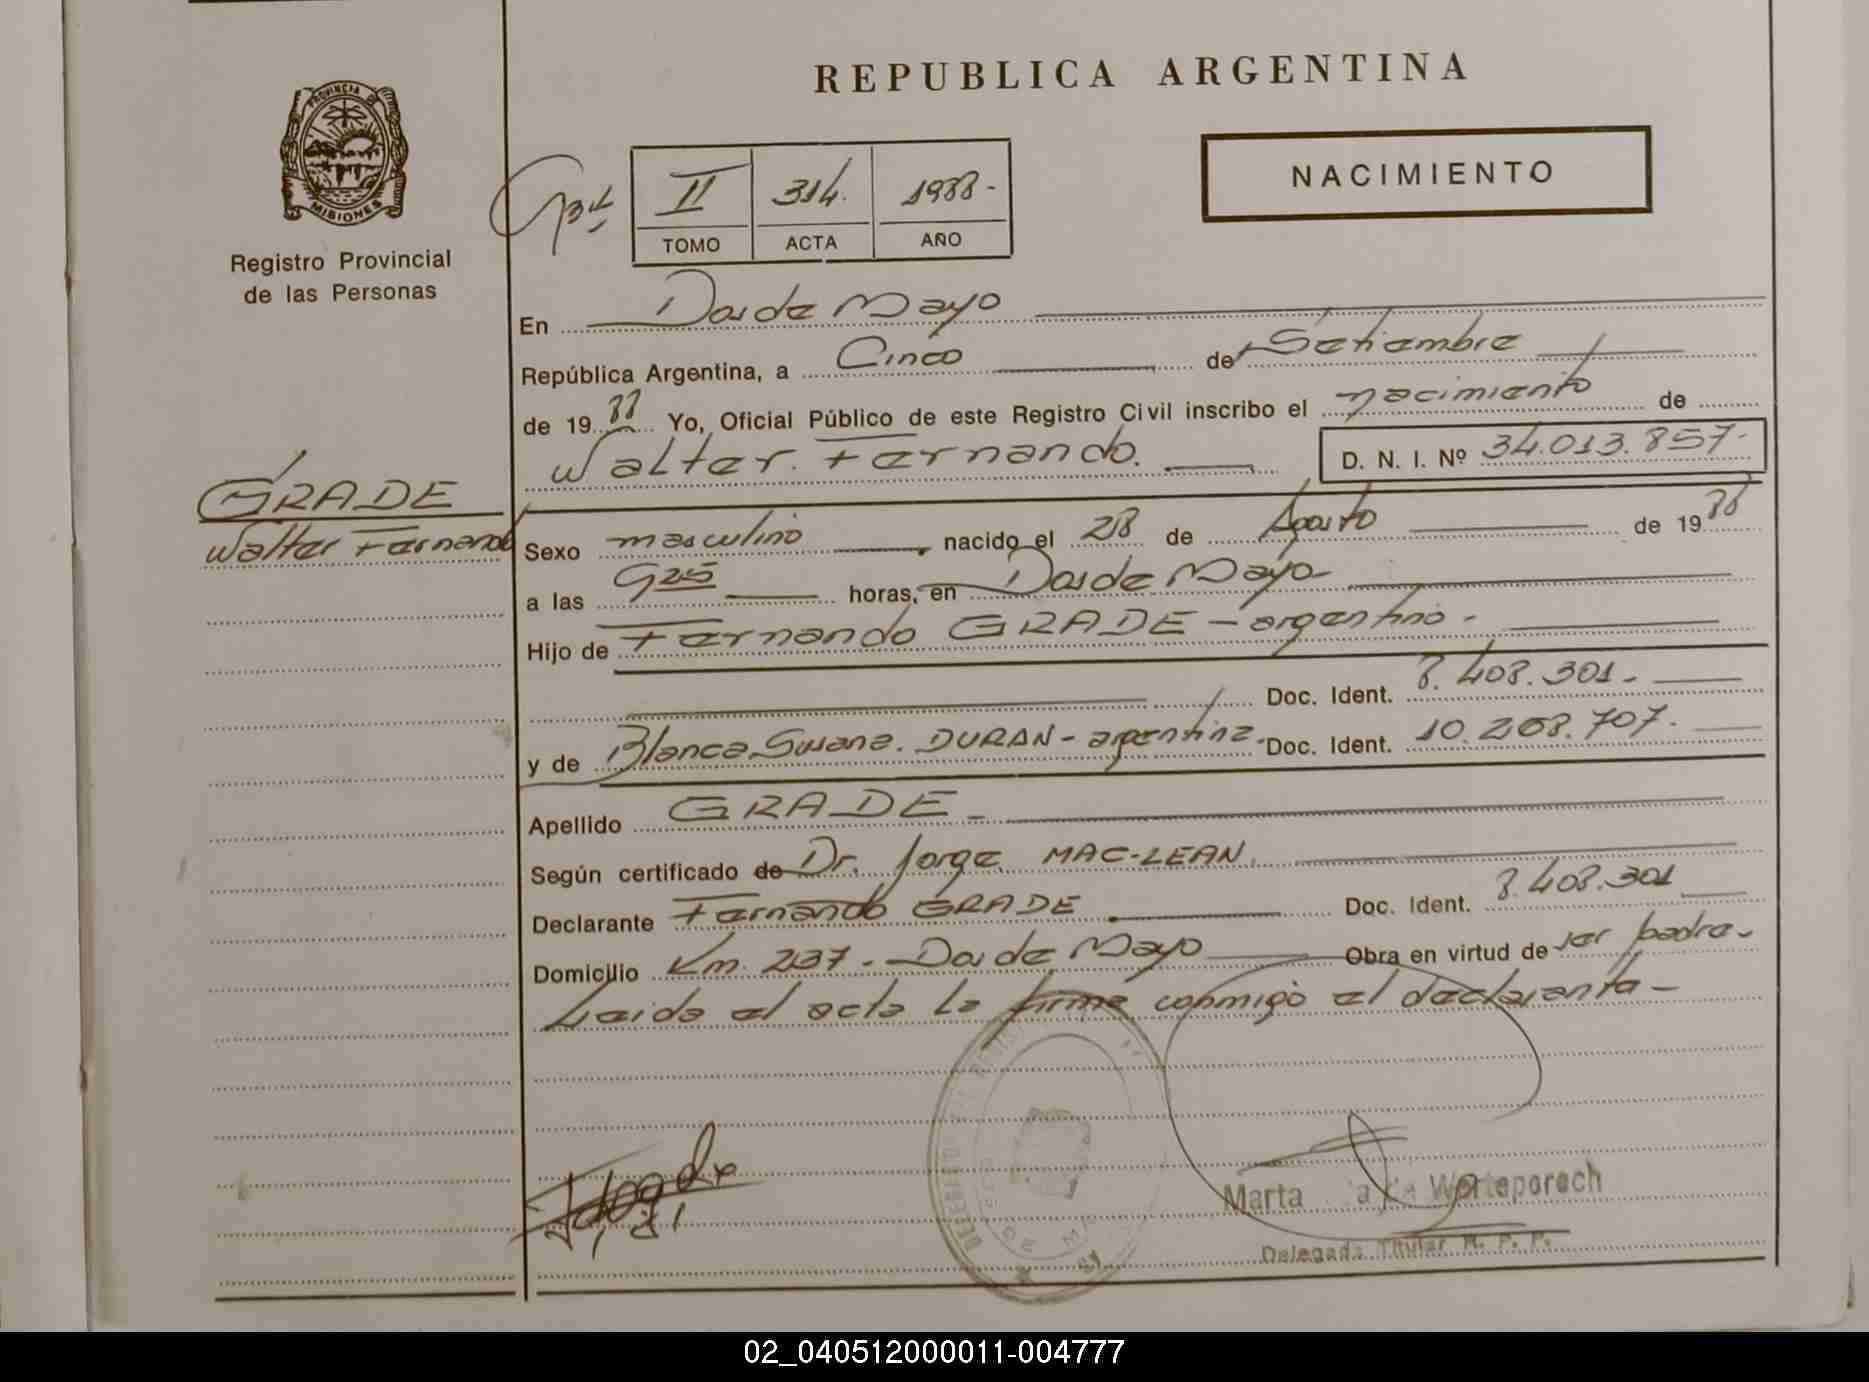 REPUBLICA ARGENTINA
PROVINCIA DE
MISIONES
Registro Provincial
de las Personas
NACIMIENTO
II 314. 1988.-
TOMO ACTA AÑO
En Dos de Mayo
República Argentina, a Cinco de Setiembre
de 19 88 Yo, Oficial Público de este Registro Civil inscribo el nacimiento de
Walter Fernando. D. N. I. Nº 34.013.857-
GRADE
Walter Fernando
Sexo masculino, nacido el 28 de Agosto de 19 88
a las 9 25 horas, en Dos de Mayo-
Hijo de Fernando GRADE - argentino-
Doc. Ident. 8.408.301-
y de Blanca Susana DURAN - argentina- Doc. Ident. 10.208.707.
Apellido GRADE-
Según certificado de Dr. Jorge MAC-LEAN.
Declarante Fernando GRADE Doc. Ident. 8.408.301
Domicilio Km. 237 - Dos de Mayo Obra en virtud de ser padre-
Leida el acta la firma conmigo el declarante-
Marta
Delegada Titular R. P. P.
02_040512000011-004777